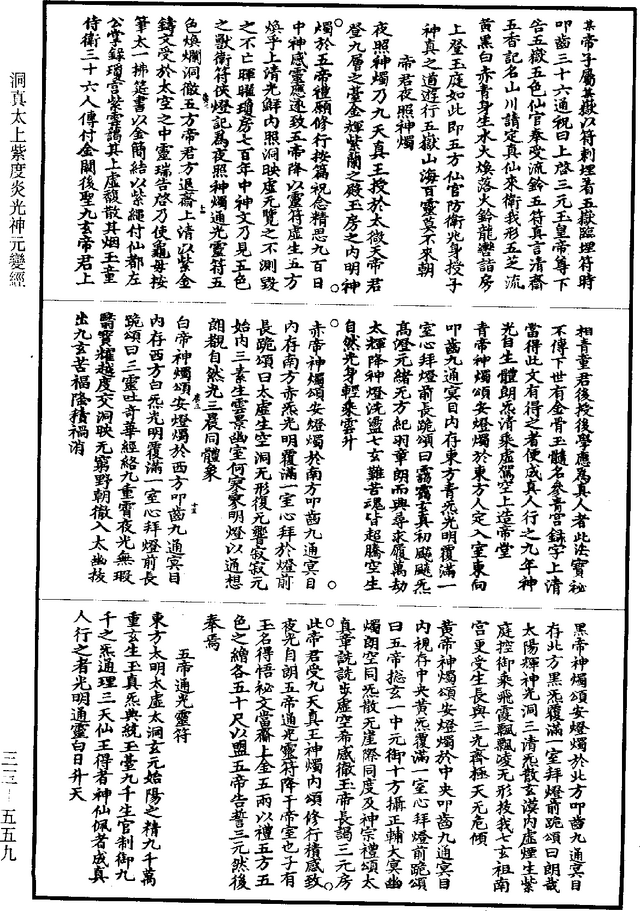 其帝子屬其嶽以符刺埋着五嶽臨埋符時
叩齒三十六通祝曰上啓三元玉皇帝尊下
告五嶽五色仙官奉受流鈴五符真言清齋
五香記名山川請定真仙來衛我形五芝流
黃黑白赤青身生水火煥落火鈴龍轡詣房
上登玉庭如此即五方仙官防衛兆身授子
神真之道遊行五嶽山海百靈莫不來朝
帝君夜照神燭
夜照神燭乃九天真王授於太微天帝君
登九層之臺金輝紫蘭之殿玉房之內明神
燭於五帝禮願修行按篇祝念精思九百日
中神感靈應遂致五帝降以靈符虛生五方
煥乎上清光鮮內照洞映虛元覽之不測毀
之不亡暉曜瓊房七百年中神文乃見五色
之獸銜符俠燈記為夜照神燭通光靈符五
色煥爛洞徹五方帝君方退齋上清以紫金
鑄文受於太空之中靈瑞告啓乃使龜母按
筆太一拂筵書以金簡結以紫繩付仙都左
公掌錄瓊宮紫雲藹其上虛馥散其烟玉童
侍衛三十六人傳付金闕後聖九玄帝君上
相青童君後授後學應為真人者此法寶祕
不傳下世有金骨玉髓名參青宮錄字上清
當得此文有得之者便成真人行之九年神
光自生體朗炁清乘虛駕空上造帝堂
青帝神燭頌安燈燭於東方人定入室東向
叩齒九通冥目內存東方青炁光明覆滿一
室心拜燈前長跪頌曰靄靄玄真初飇飇炁
高澄元緒无方紀羽章朗而興尋求領萬劫
太輝降神燈洗盪七玄難苦魂皆超騰空生
自然光身輕乘雲升
赤帝神燭頌安燈燭於南方叩齒九通冥目
內存南方赤炁光明覆滿一室心拜於燈前
長跪頌曰太虛生空洞无形復元響寂寂元
始內三素生雲景幽室何寥寥明燈以通想
朗觀自然光三晨同體象
白帝神燭頌安燈燭於西方叩齒九通冥目
內存西方白炁光明覆滿一室心拜燈前長
跪頌曰三靈吐奇華經絡九重霄夜光無瑕
翳寶耀越度交洞映无窮野朝徹入太幽扳
出九玄苦福隂積禍消
黑帝神燭頌安燈燭於北方叩齒九通冥目
存北方黑炁覆滿一室拜燈前跪頌曰朗哉
太陽輝神光洞三清炁散玄漠內虛煙生紫
庭控御乘飛霞飄飄凌无形技我七玄祖南
宮更受生長與三光齊極天无危傾
黃帝神燭頌安燈燭於中央叩齒九通冥目
內視存中央黃炁覆滿一室心拜燈前跪頌
曰五帝揔玄一中元御十方攝正輔太冥幽
燭朗空同炁散无崖際同度及神宗禮頌太
真章詵詵步虛空希感徹玉帝長謁三元房
此帝君受九天真王神燭內頌修行積感致
夜光自朗五帝通光靈符降于帝室也子有
玉名得悟祕文當齋上金五兩以禮五方五
色之繒各五十尺以盟五帝告誓三元然後
奉焉
五帝通光靈符
東方太明太虛太洞玄元始陽之精九千萬
重玄生玉真炁典統玉臺九千生官制御九
千之炁通理三天仙王得者神仙佩者成真
人行之者光明通靈白日升天
洞真太上紫度炎光神元變經
三三—五五九